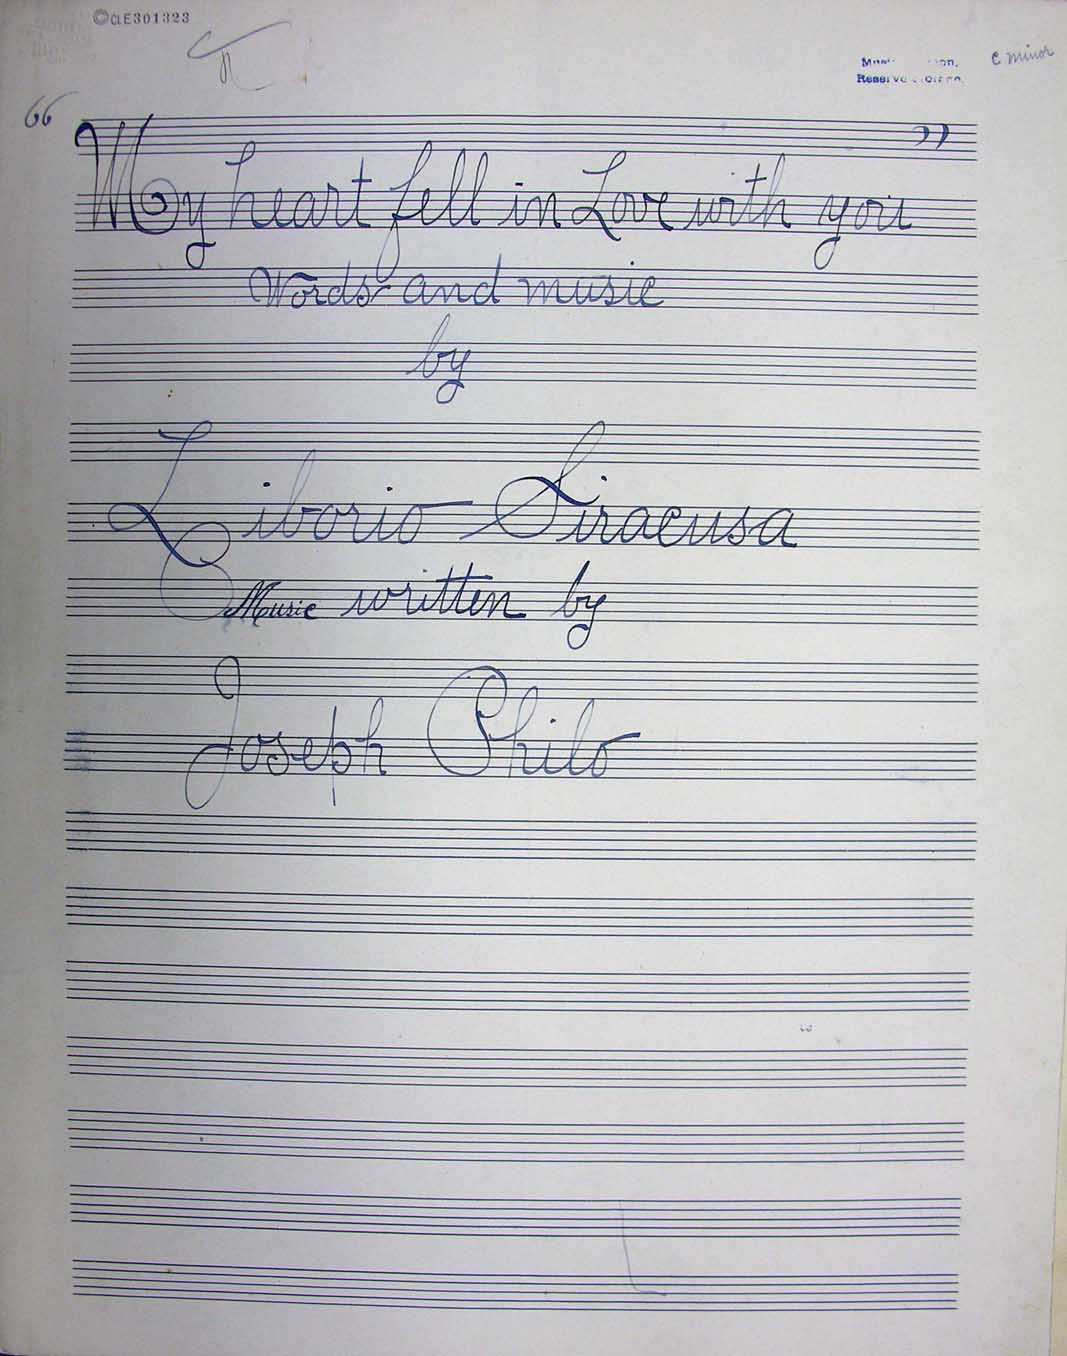 ©CLE301323
C minor
66 ”
My heart fell in Love with you
Words and music
by
Liborio Siracusa
Music written by
Joseph Philo